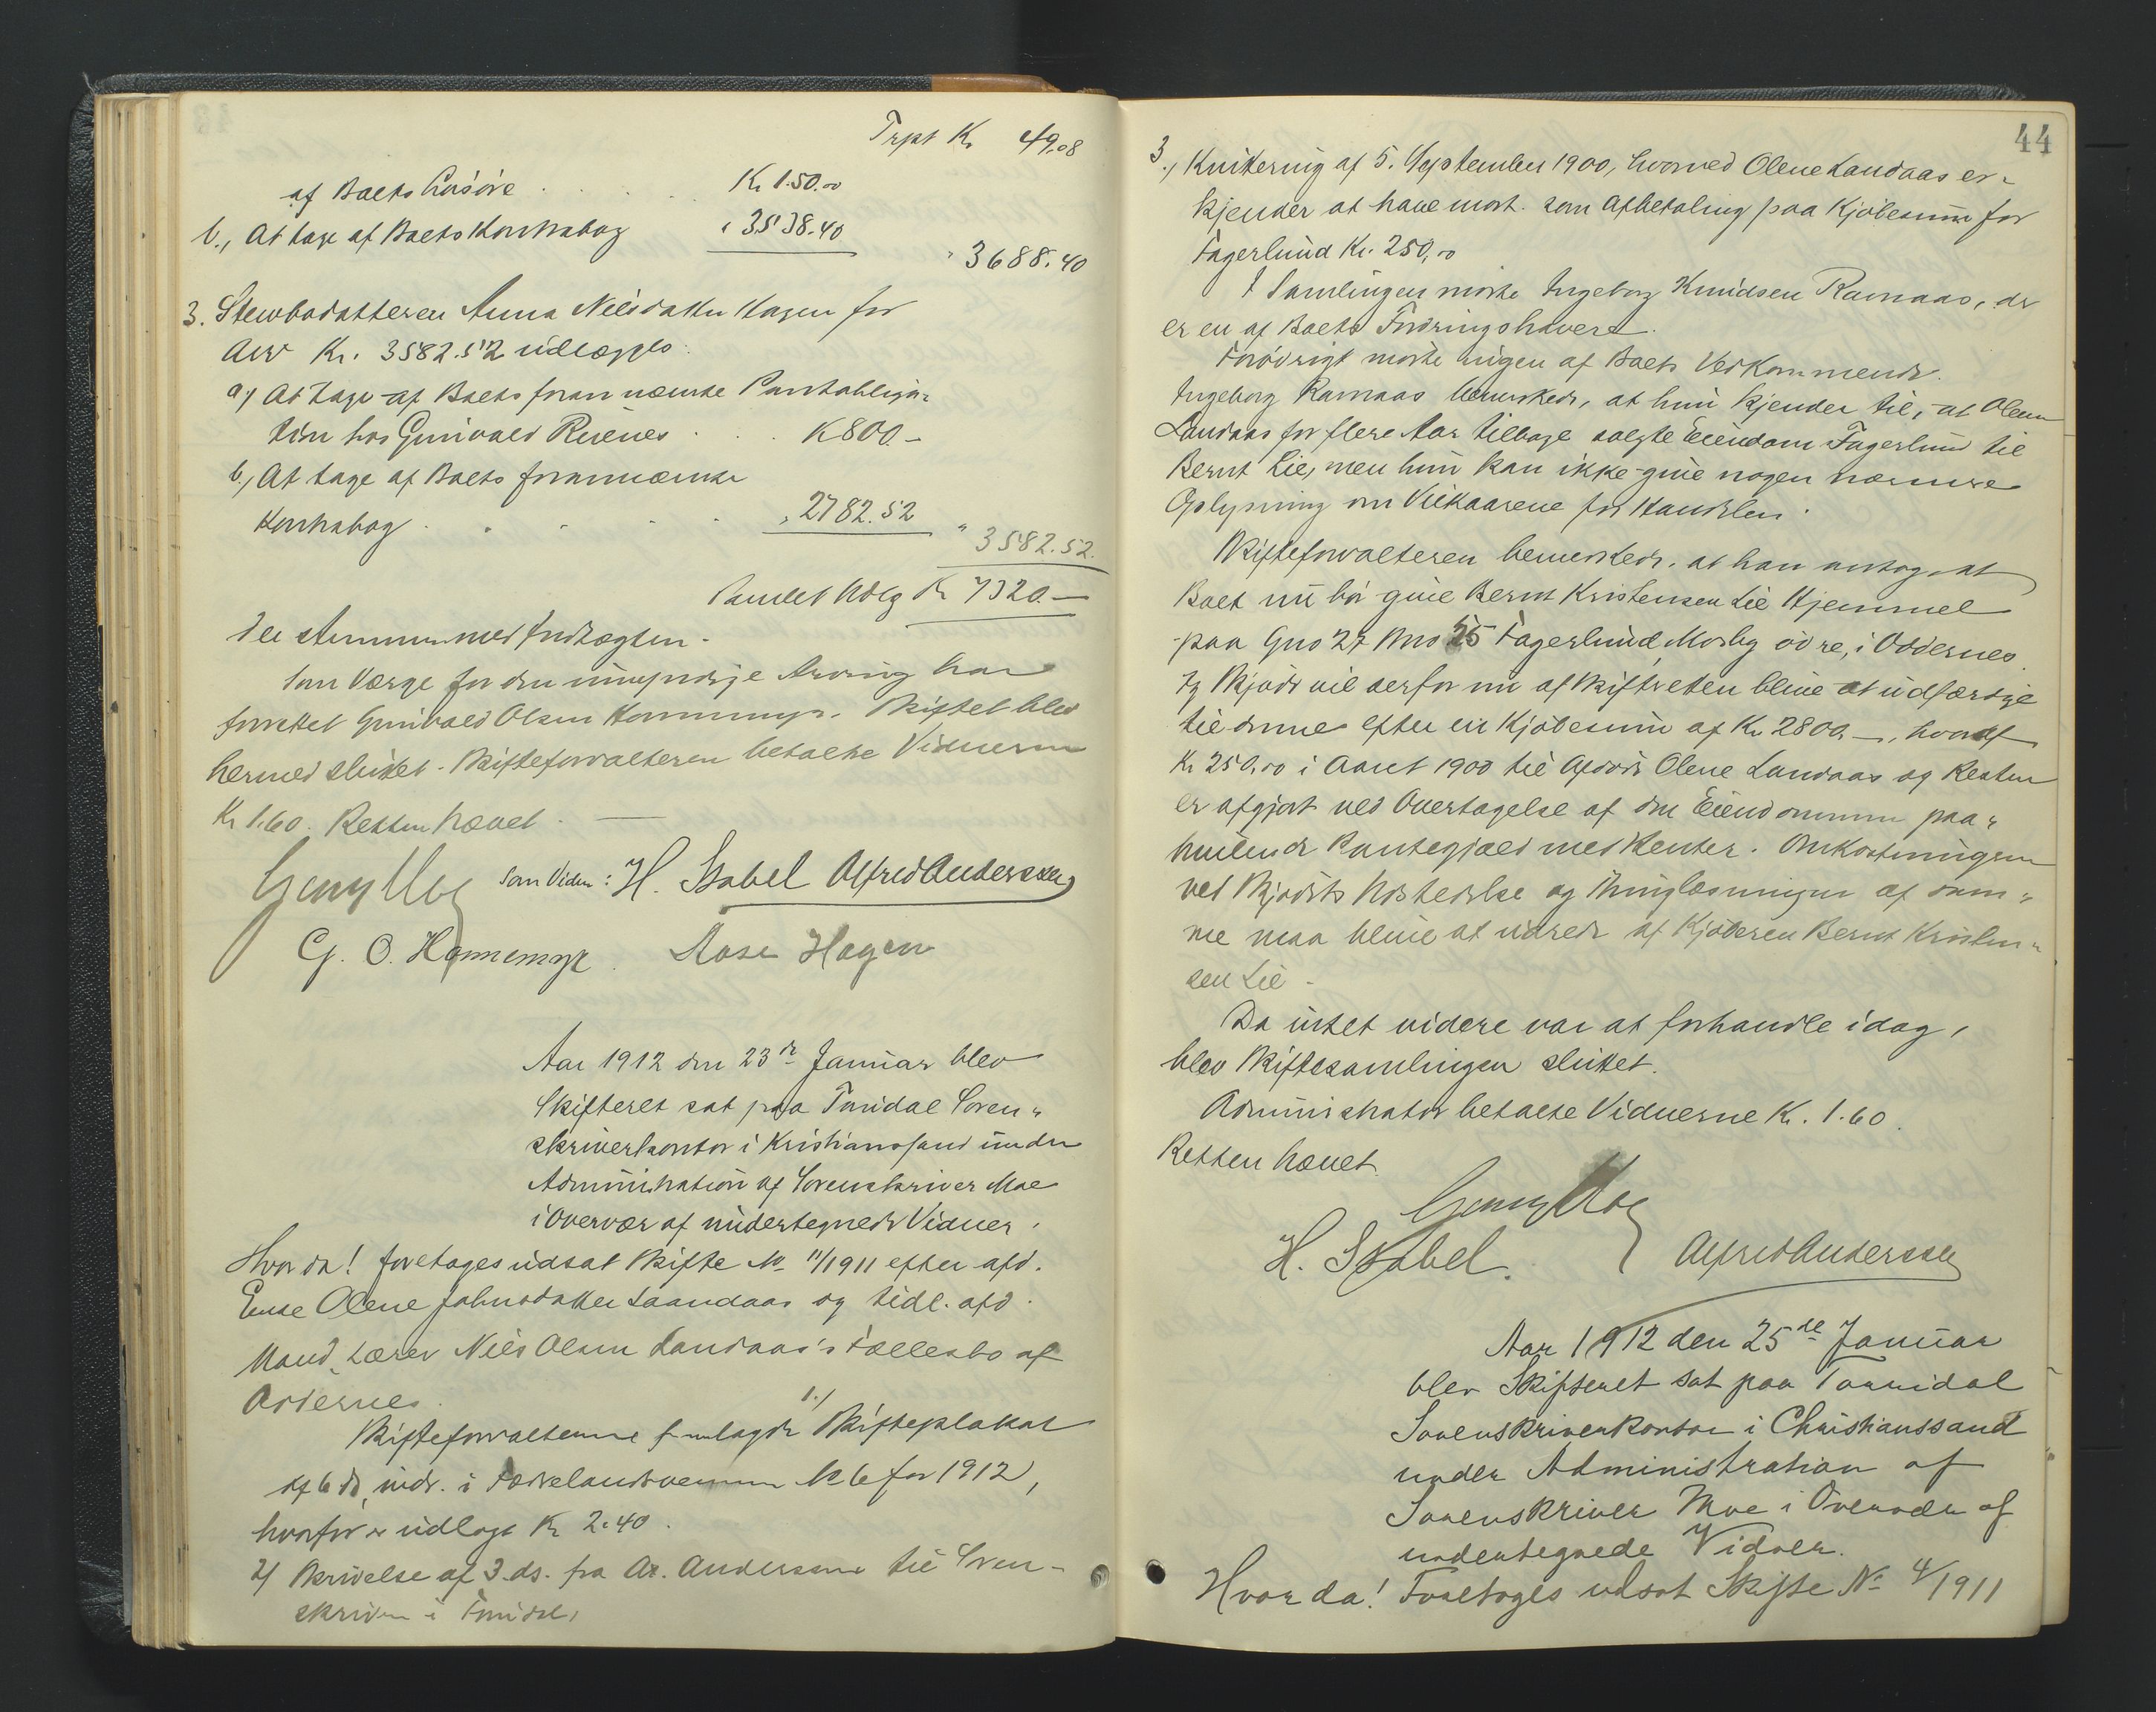 Trpt Kr 49,08
af Boets Løsøre . . . . Kr 150.00
b., At tage af Boets Kontrabog " 3538.40
" 3688.40
3. Stervbodatteren Anna Nilsdatter Hagen for
Arv Kr. 3582.52 udlægges:
a) At tage af Boets foran nævnte Pantobliga-
tion hos Gunvald Ruenes . . . K 800.—
b., At tage af Boets forannævnte
Kontrabog . . . . . " 2782.52
" 3582.52.
Samlet Udlæg Kr 7320.—
der stemmer med Indtægten.
Som Værge for den umyndige Arving har
Gunvald Olsen Hommemyr. Skiftet blev
hermed sluttet. Skifteforvalteren betalte Vidnerne
Kr 1.60. Retten hævet. —
som Vidner: H. Stabel Alfred Anderssen
G. O. Hommemyr. Aase Hagen
Aar 1912 den 23de Januar blev
Skifteret sat paa Torridal Soren-
skriverkontor i Kristianssand under
Administration af Sorenskriver Moe
i Overvær af undertegnede Vidner.
Hvor da! foretoges udsat Skifte No 11/1911 efter afd.
Enke Olene Johnsdatter Laandaas og tidl. afd.
Mand, Lærer Nils Olsen Landaas's Fællesbo af
Oddernes.
Skifteforvalteren fremlagde 1./ Skifteplakat
af 6 ds, indr. i Fædrelandsvennen No 6 for 1912,
hvorfor er udlagt Kr 2.40.
2) Skrivelse af 3. ds. fra Ar. Anderssen til Soren-
skriveren i Torridal,
44
3., Kvittering af 5. September 1900, hvorved Olene Landaas er-
kjender at have mort. som Afbetaling paa Kjøbesum for
Fagerlund Kr. 250,00
I Samlingen mødte Ingeborg Knudsen Ravnaas, der
er en af Boets Fordringshavere.
Forøvrigt mødte ingen af Boets Vedkommende.
Ingeborg Ravnaas bemerkede, at hun kjender til, at Olene
Landaas for flere Aar tilbage solgte Eiendom Fagerlund til
Bernt Lie, men hun kan ikke give nogen nærmere
Oplysning om Vilkaarene for Handelen.
Skifteforvalteren bemerkede, at han antog, at
Boet nu bør give Bernt Kristensen Lie Hjemmel
paa Gno 27 Bno 25 Fagerlund, Mosby øvre, i Oddernes.
Og Skjøde vil derfor nu af Skifteretten blive at udfærdige
til denne efter en Kjøbesum af Kr. 2800.—, hvoraf
Kr 250.00 i Aaret 1900 til Afdøde Olene Landaas og Resten
er afgjort ved Overtagelse af den Eiendommen paa-
hvilende Pantegjæld med Renter. Omkostningerne
ved Skjødets Udstedelse og Thinglæsningen af sam-
me maa blive at udrede af Kjøberen Bernt Kristen-
sen Lie.
Da intet videre var at forhandle idag,
blev Skiftesamlingen sluttet.
Administrator betalte Vidnerne Kr. 1.60.
Retten hævet.
H. Stabel. Alfred Anderssen
Aar 1912 den 25de Januar
blev Skifteret sat paa Torridal
Sorenskriverkontor i Christianssand
under Administration af
Sorenskriver Moe i Overvær af
undertegnede Vidner.
Hvor da! Foretoges udsat Skifte No 4/1911